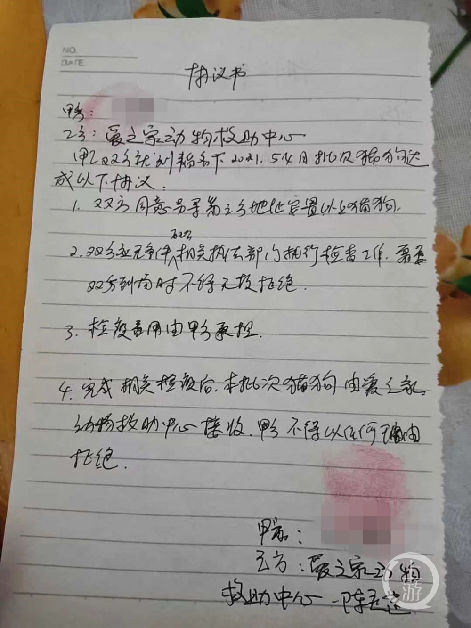 NO.
DATE
协议书
甲方:
乙方:爱之家动物救助中心
甲乙双方就 2021.5.4日批次猫狗达
成以下协议.
1. 双方同意另寻第三方地址安置以上猫狗.
2. 双方应无条件配合相关执法部门执行检查工作,需要
双方到场时不得无故拒绝.
3. 检疫费用由甲方承担.
4. 完成相关检疫后,本批次猫狗由爱之家
动物救助中心接收.甲方不得以任何理由
拒绝.
甲方:
乙方:爱之家动物
救助中心
游